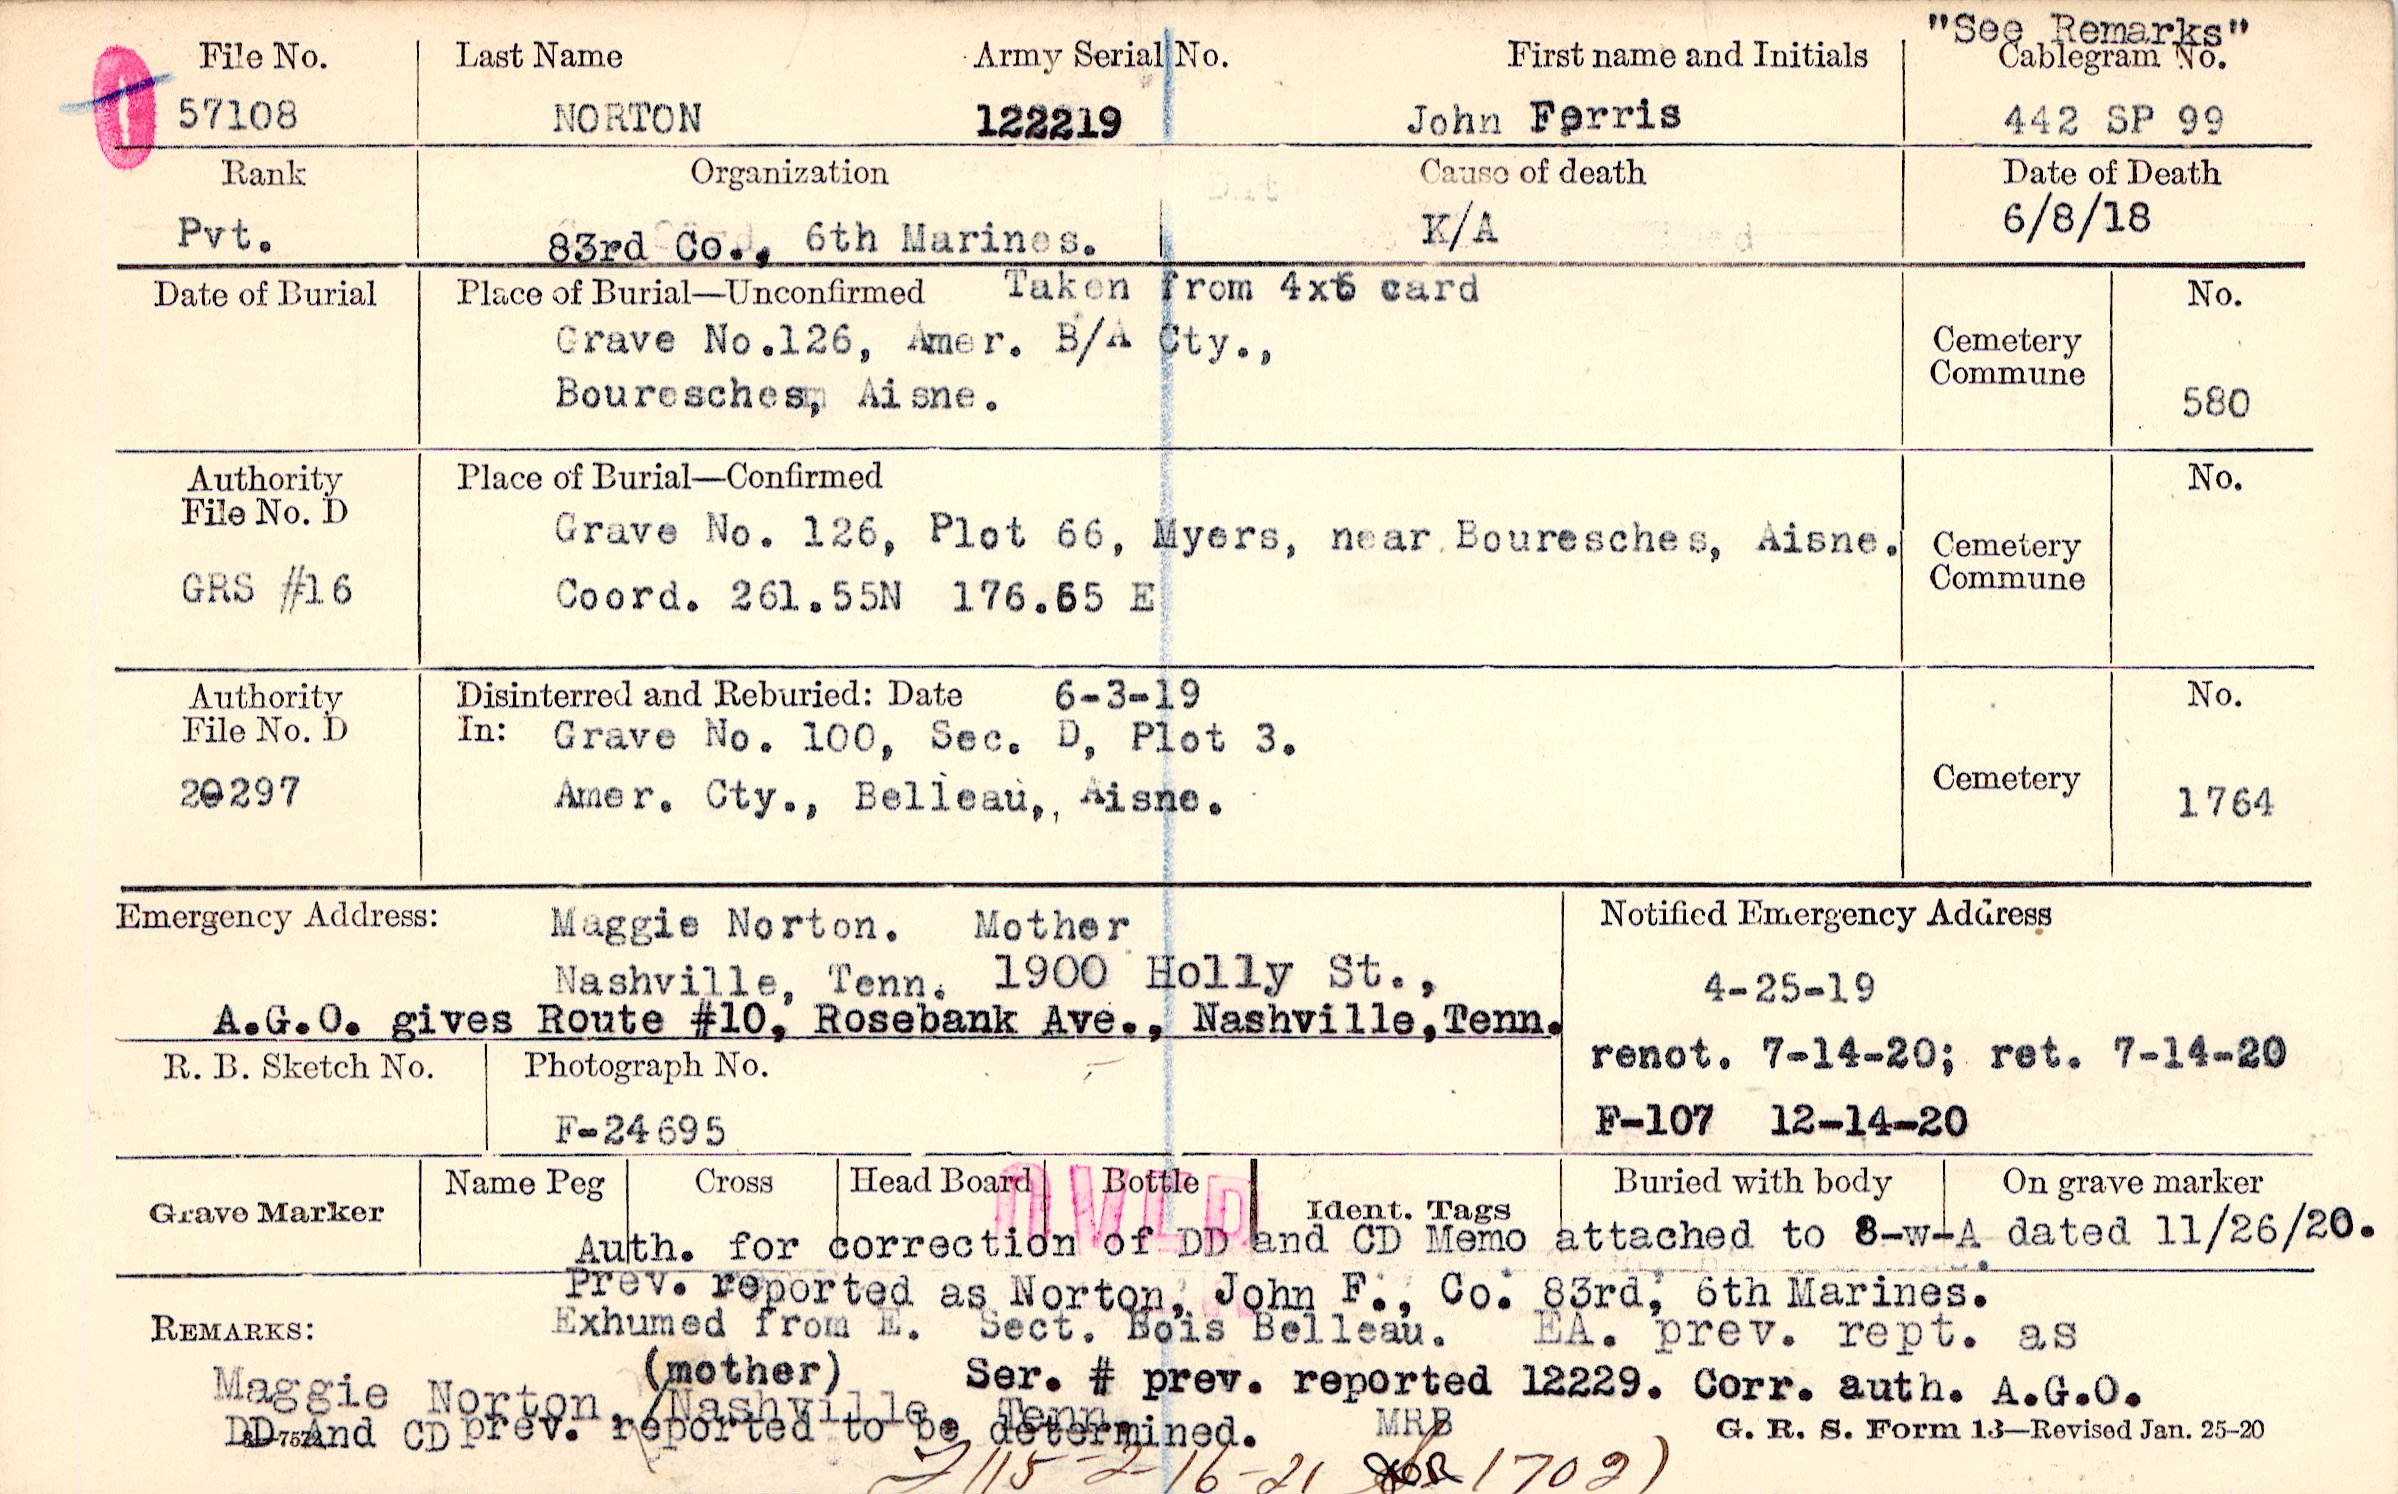 "See Remarks"
File No. Last Name Army Serial No. First name and Initials Cablegram No.
57108 NORTON 122219 John Ferris 442 SP 99
Rank Organization Cause of death Date of Death
Pvt. 83rd Co., 6th Marines. K/A 6/8/18
Date of Burial Place of Burial—Unconfirmed Taken from 4x6 card No.
Grave No.126, Amer. B/A Cty., Cemetery
Bouresches, Aisne. Commune 580
Authority Place of Burial—Confirmed No.
File No. D
Grave No. 126, Plot 66, Myers, near Bouresches, Aisne. Cemetery
GRS #16 Coord. 261.55N 176.65 E Commune
Authority Disinterred and Reburied: Date 6-3-19 No.
File No. D In: Grave No. 100, Sec. D, Plot 3.
20297 Amer. Cty., Belleau, Aisne. Cemetery 1764
Emergency Address: Maggie Norton. Mother Notified Emergency Address
Nashville, Tenn. 1900 Holly St., 4-25-19
A.G.O. gives Route #10, Rosebank Ave., Nashville,Tenn.
R. B. Sketch No. Photograph No. renot. 7-14-20; ret. 7-14-20
F-24695 F-107 12-14-20
Grave Marker Name Peg Cross Head Board Bottle Ident. Tags Buried with body On grave marker
Auth. for correction of DD and CD Memo attached to 8-w-A dated 11/26/20.
Prev. reported as Norton, John F., Co. 83rd, 6th Marines.
REMARKS: Exhumed from E. Sect. Bois Belleau. EA. prev. rept. as
(mother) Ser. # prev. reported 12229. Corr. auth. A.G.O.
Maggie Norton, Nashville, Tenn.
DD And CD prev. reported to be determined. MRB G. R. S. Form 13—Revised Jan. 25-20
2-16-21 1702)